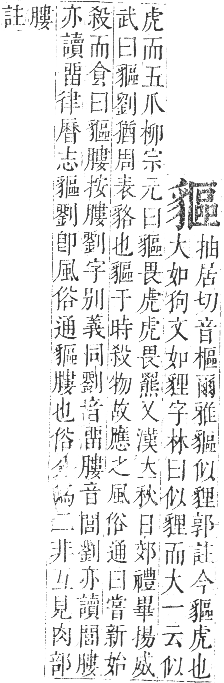 貙
抽居切音樞爾雅貙似貍郭註今貙虎也
大如狗文如貍字林曰似貍而大一云似
虎而五爪柳宗元曰貙畏虎虎畏羆又漢立秋日郊禮畢揚威
武曰貙劉猶周表貉也貙于時殺物故應之風俗通曰嘗新始
殺而食曰貙膢按膢劉字別義同劉音畱膢音閭劉亦讀閭膢
亦讀畱律曆志貙劉卽風俗通貙膢也俗分二非互見肉部
膢註